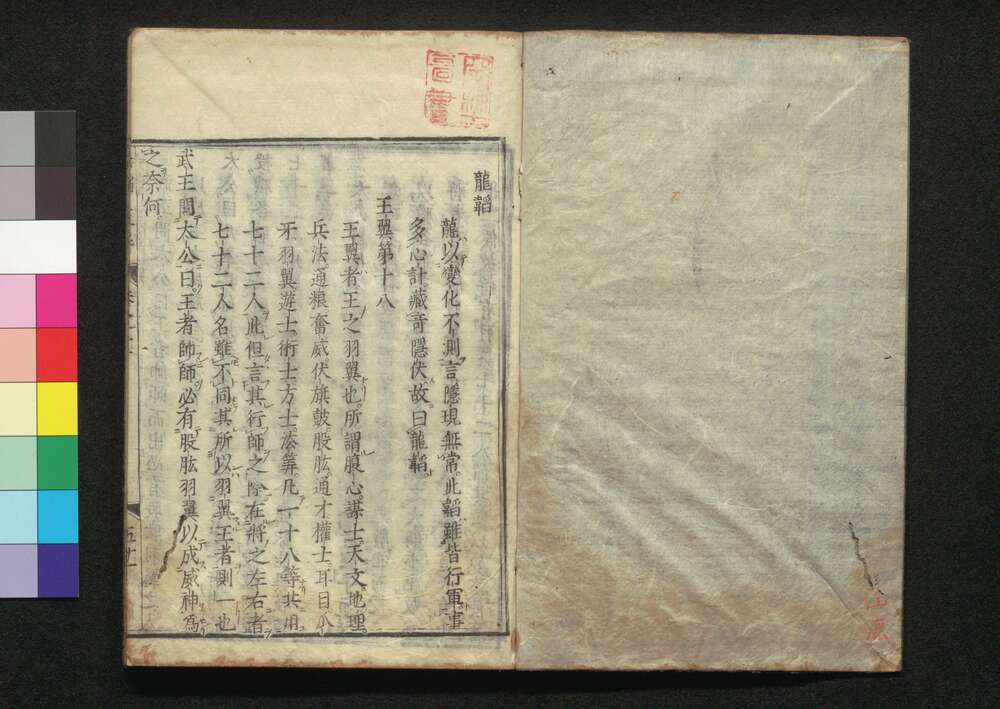 龍韜
龍以變化不測言隱現無常此韜雖皆行軍事
多心計藏奇隱伏故曰龍韜
王翼第十八
王翼者王之羽翼也所謂腹心謀士天文地理
兵法通粮奮威伏旗鼓股肱通才權士耳目爪
牙羽翼遊士術士方士法筭凡一十八等共用
七十二人此但言其行師之際在將之左右者
七十二人名雖不同其所以羽翼王者則一也
武王問太公曰王者帥師必有股肱羽翼以成威神爲
之奈何